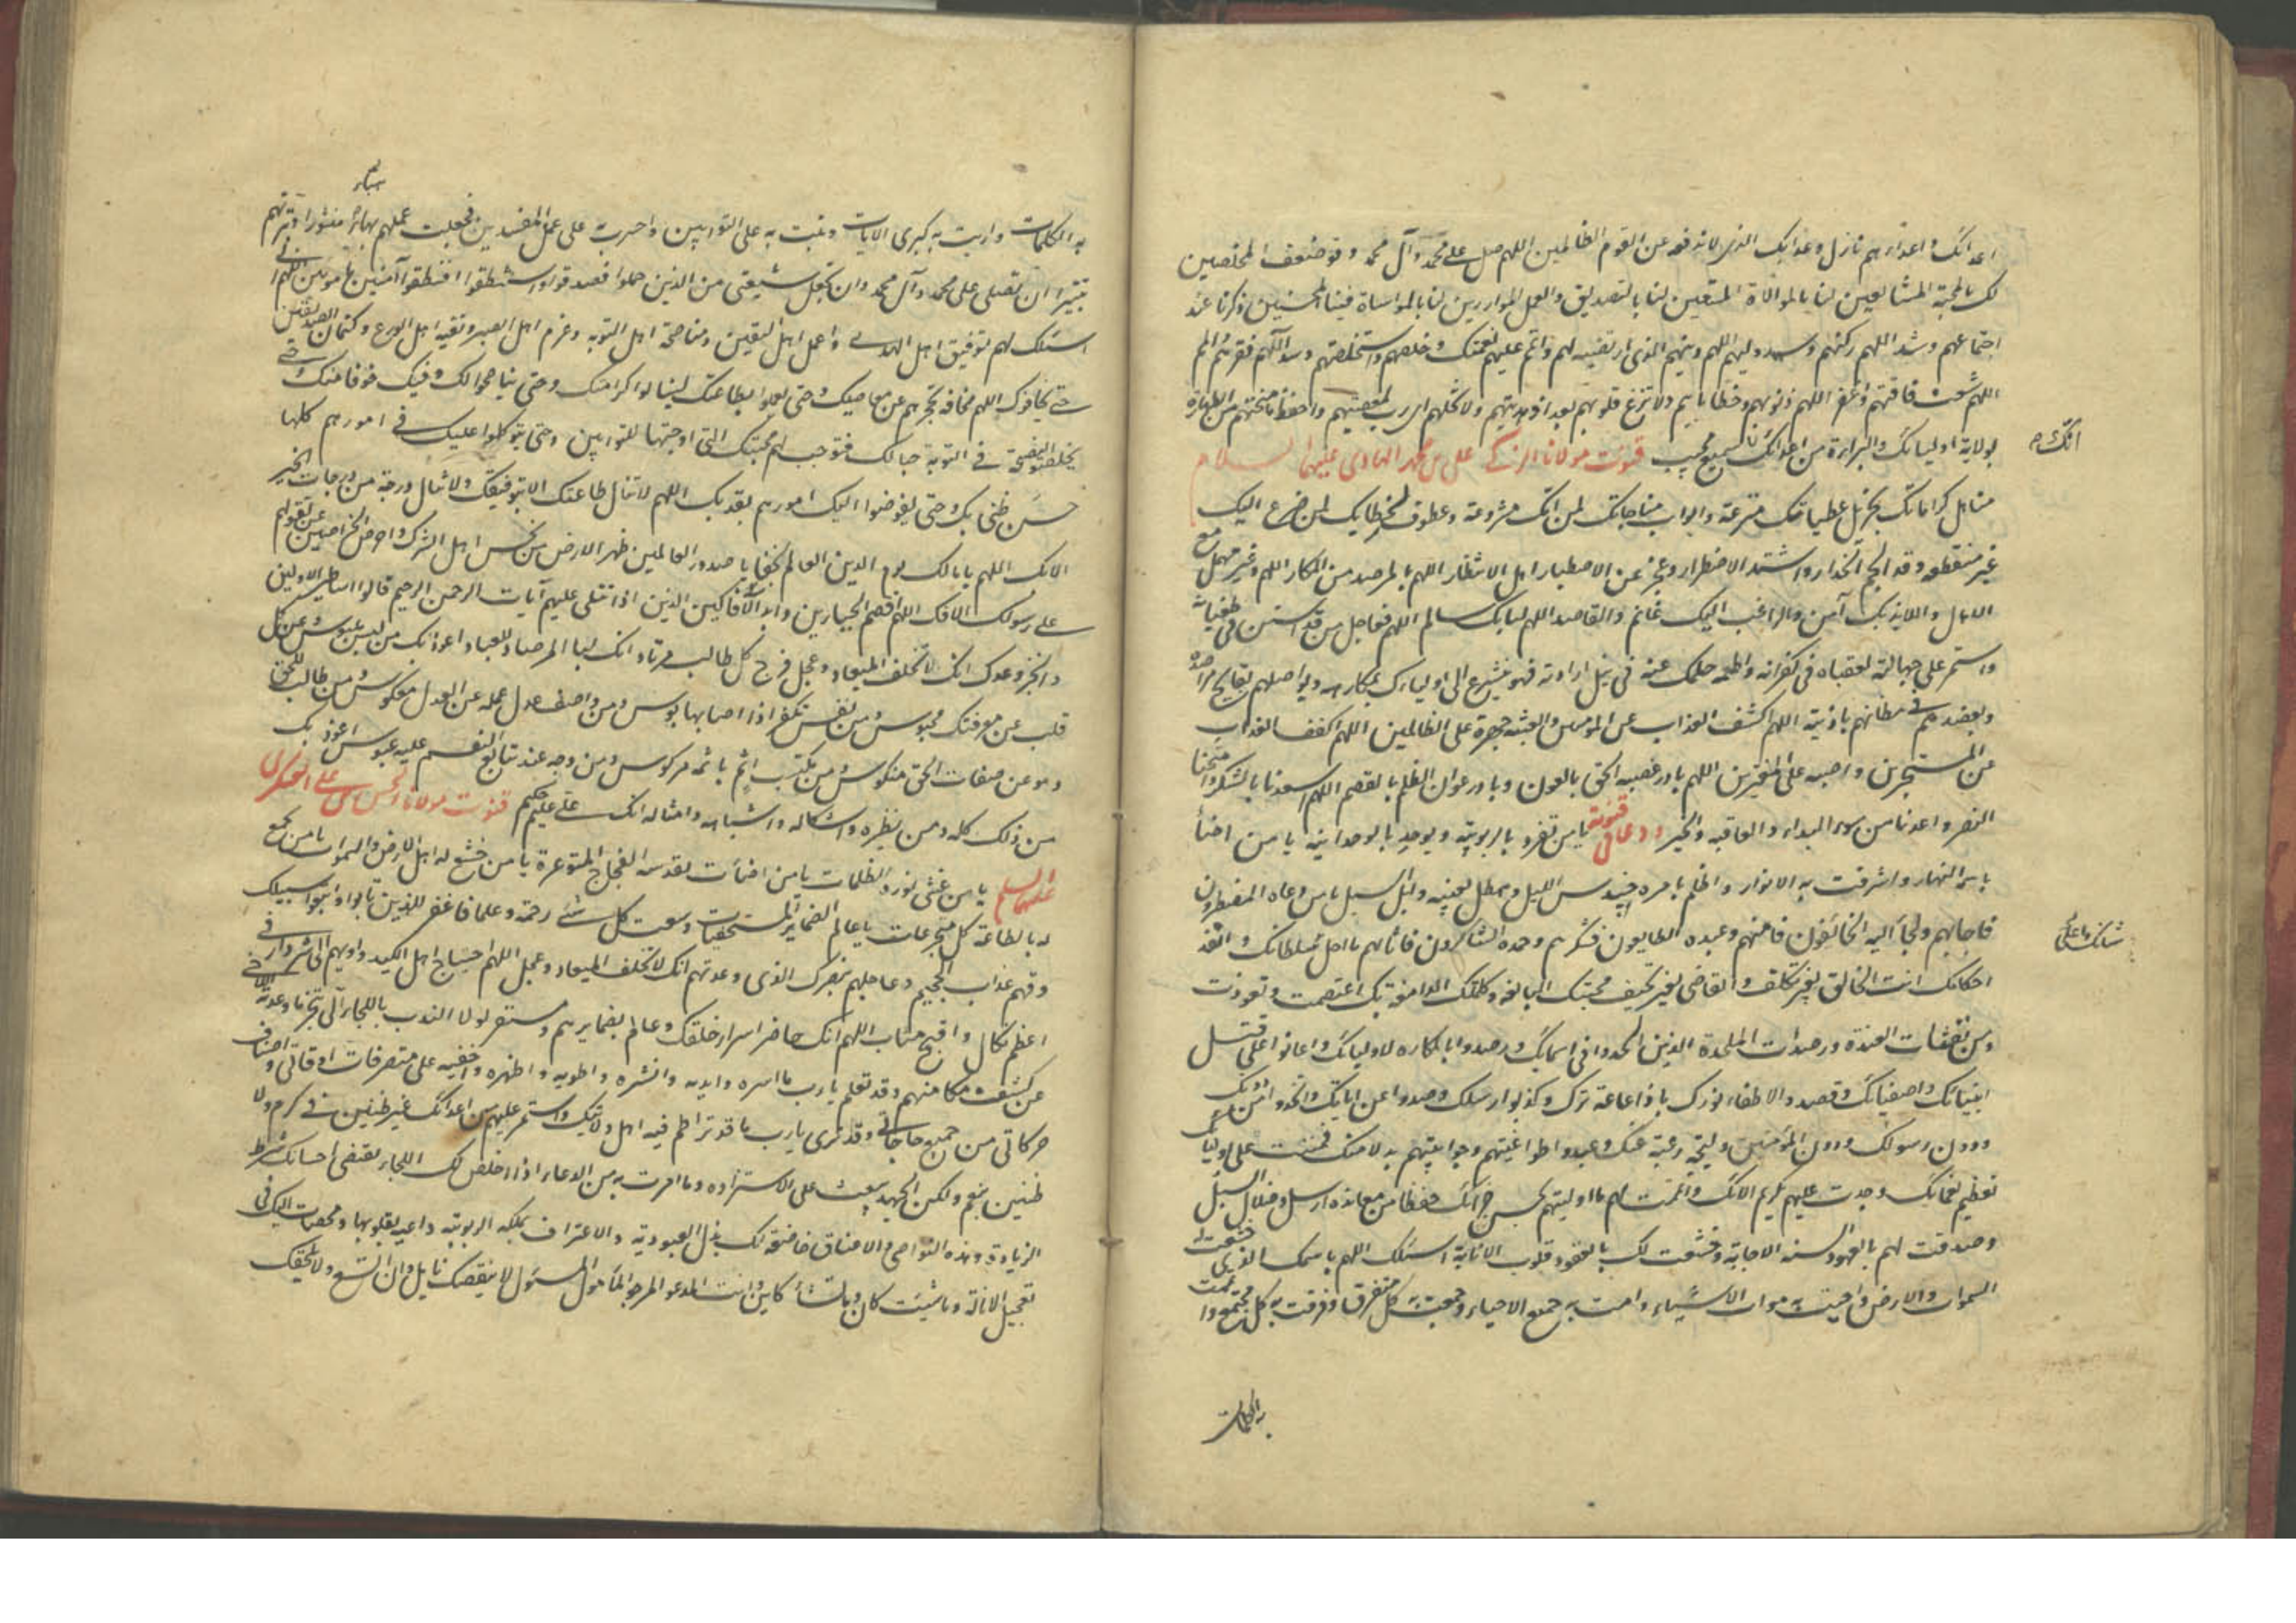 اعدائك واعداؤهم نازل وعذابك الذي لا تدفعه عن القوم الظالمين اللهم صل على محمد وآل محمد وقو ضعف المخلصين
لك بالمحبة المشايعين لنا بالموالاة المتبعين لنا بالتصديق والعمل الموازرين لنا بالمواساة فينا المحبين ذكرنا عند
اجتماعهم وشد اللهم ركنهم وسدد لهم اللهم دينهم الذي ارتضيته لهم واتمم عليهم نعمتك وخلصهم واستخلصهم وسد اللهم فقرهم والمم
اللهم شعث فاقتهم واغفر اللهم ذنوبهم وخطاياهم ولا تزغ قلوبهم بعد اذ هديتهم ولا تخلهم اي رب بمعصيتهم واحفظ لهم ما منحتهم من الطهارة
بولاية اوليائك والبراءة من اعدائك انك سميع مجيب قنوت مولانا الزكي علي بن محمد الهادي عليهما السلام
مناهل كراماتك بجزيل عطياتك مترعة وابواب مناجاتك لمن امك مشرعة وعطوف لحظاتك لمن ضرع اليك
غير منقطعة وقد الجم الحذار واشتد الاضطرار وعجز عن الاصطبار اهل الانتظار اللهم بالمرصد من المكار اللهم وغير مهمل مع
الامهال واللائذ بك آمن والراغب اليك غانم والقاصد اللهم لبابك سالم اللهم فعاجل من قد استن في طغيانه
واستمر على جهالته لعقباه في كفرانه واطمعه حلمك عنه في نيل ارادته فهو يتسرع الى اوليائك بمكاره ويواصلهم بقبايح مراصده
ويقصدهم في مظانهم باذيته اللهم اكشف العذاب عن المؤمنين وابعثه جهرة على الظالمين اللهم اكفف العذاب
عن المستجيرين واصببه على المغترين اللهم بادر عصبة الحق بالعون وبادر اعوان الظلم بالقصم اللهم اسعدنا بالشكر وامنحنا
النصر واعذنا من سوء البداء والعاقبة والختر ودعا في قنوته يا من تفرد بالربوبية وتوحد بالوحدانية يا من اضاء
باسمه النهار واشرقت به الانوار واظلم بامره حندس الليل وهطل بغيثه وابل السيل يا من دعاه المضطرون
فاجابهم ولجأ اليه الخائفون فآمنهم وعبده الطائعون فشكرهم وحمده الشاكرون فاثابهم ما اجل شانك واعلى سلطانك وانفذ
احكامك انت الخالق بغير تكلف والقاضي بغير تحيف حجتك البالغة وكلمتك الدامغة بك اعتصمت وتعوذت
من نفثات العندة ورصدات الملحدة الذين الحدوا في اسمائك ورصدوا بالمكاره لاوليائك واعانوا على قتل
انبيائك واصفيائك وقصدوا لاطفاء نورك باذاعة سرك وكذبوا رسلك وصدوا عن اياتك واتخذوا من دونك
ودون رسولك ودون المؤمنين وليجة رغبة عنك وعبدوا طواغيتهم وجوابيتهم بدلا منك فمننت على اوليائك
بعظيم نعمائك وجدت عليهم بكريم الائك واتممت لهم ما اوليتهم بحسن جزائك حفظا من معاندة الرسل وضلال السبل
وصدقت لهم بالعهود السنة الاجابة وخشعت لك بالعقود قلوب الانابة اسئلك اللهم باسمك الذي خشعت له
السموات والارض واحييت به موات الاشياء وامت به جميع الاحياء وجمعت به كل متفرق وفرقت به كل مجتمع واتممت
به الكلمات
انك
شانك واعلى
به الكلمات واريت به كبرى الايات وتبت به على التوابين واخسرت به على عمل المفسدين فجعلت عملهم هباء منثورا وتبرتهم
تتبيرا ان تصلي على محمد وآل محمد وان تجعل شيعتي من الذين حملوا فصدقوا واستنطقوا فنطقوا آمنين مأمونين اللهم اني
اسئلك لهم توفيق اهل الهدى واعمال اهل اليقين ومناصحة اهل التوبة وعزم اهل الصبر وتقية اهل الورع وكتمان الصديقين
حتى يخافوك اللهم مخافة تحجزهم عن معاصيك وحتى يعملوا بطاعتك لينالوا كرامتك وحتى يناصحوا لك وفيك خوفا منك وحتى
يخلصوا النصيحة في التوبة حبا لك فتوجب لهم محبتك التي اوجبتها للتوابين وحتى يتوكلوا عليك في امورهم كلها
حسن ظن بك وحتى يفوضوا اليك امورهم ثقة بك اللهم لا تنال طاعتك الا بتوفيقك ولا تنال درجة من درجات الخير
الا بك اللهم يا مالك يوم الدين العالم بخفايا صدور العالمين طهر الارض من نجس اهل الشرك واخرص الخراصين عن تقولهم
على رسولك الافك اللهم اقصم الجبارين وابر الافاكين الذين اذا تتلى عليهم آيات الرحمن الرحيم قالوا اساطير الاولين
وانجز وعدك انك لا تخلف الميعاد وعجل فرج كل طالب مرتاد انك لبالمرصاد للعباد اعوذ بك من لبس ملبوس ومن كل
قلب عن معرفتك محبوس ومن نفس تكفر اذا اصابها بوس ومن واصف عدل عمله عن العدل معكوس ومن طالب للحق
وهو عن صفات الحق منكوس ومن مكتسب اثم باثمه مركوس ومن وجه عند تتابع النعم عليه عبوس اعوذ بك
من ذلك كله ومن نظيره واشكاله واشباهه وامثاله انك علي عليم حكيم قنوت مولانا الحسن بن علي العسكري
عليهما السلام يا من غشي نوره الظلمات يا من اضاءت بقدسه الفجاج المتوعرة يا من خشع له اهل الارض والسموات يا من بخع
له بالطاعة كل متجبر عات يا عالم الضماير المستخفيات وسعت كل شئ رحمة وعلما فاغفر للذين تابوا واتبعوا سبيلك
وقهم عذاب الجحيم وعاجلهم بنصرك الذي وعدتهم انك لا تخلف الميعاد وعجل اللهم اجتياح اهل الكيد وآوهم الى شر دار في
اعظم نكال واقبح متاب اللهم انك حاضر اسرار خلقك وعالم بضمايرهم ومستغن لولا الندب باللجاء الى تنجز ما وعدته اللاجئ
عن كشف مكامنهم وقد تعلم يا رب ما اسره وابديه وانشره واطويه واظهره واخفيه على متصرفات اوقاتي واصناف
حركاتي من جميع حاجاتي وقد ترى يا رب ما قد تراطم فيه اهل ولايتك واستمر عليهم من اعدائك غير ظنين في كرم ولا
ظنين بنعم ولكن الجهد يبعث على الاستزادة وما امرت به من الدعاء اذا اخلص لك اللجاء يقتضي احسانك شرط
الزيادة وهذه النواصي والاعناق خاضعة لك بذل العبودية والاعتراف بملكة الربوبية داعية بقلوبها ومحصنات اليك في
تعجيل الانالة وما شئت كان وما تشاء كاين وانت المدعو المرجو المأمول المسئول لا ينقصك نايل وان اتسع ولا يلحفك